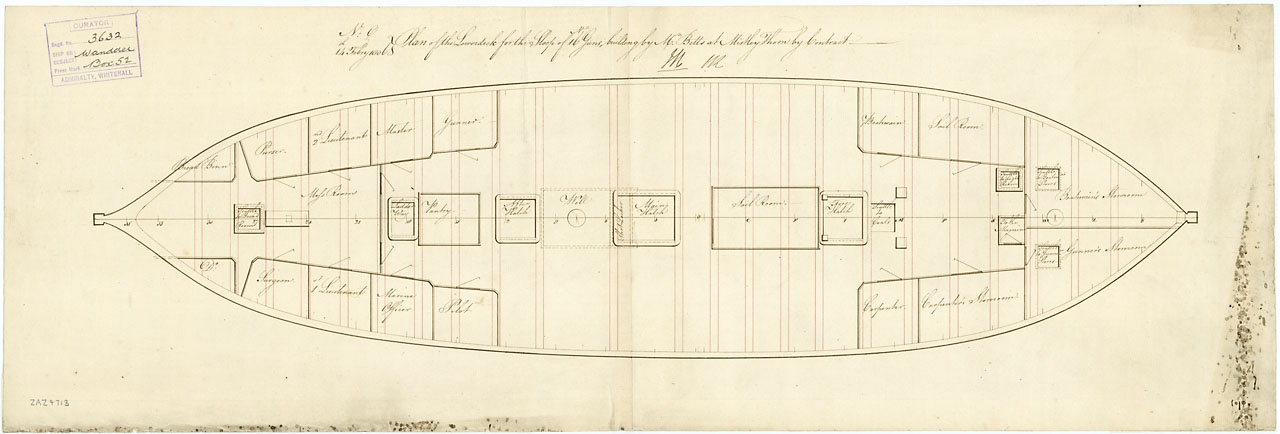 CURATOR
Regd. No. 3632
SHIP OR SUBJECT Wanderer
Press Mark Box 52
ADMIRALTY, WHITEHALL
No. 6
14 Febry 1806
Plan of the Lowerdeck for the Sloop of Guns, building by Mr. Betts at Mistley Thorn by Contract
Bread Binn
Purser
2nd Lieutenant
Master
Gunner
Boatswain
Sail Room
Mess Room
Ladder Way
Pantry
After Hatch
Well
Main Hatch
Sail Room
Fore Hatch
Boatswain's Storeroom
Gunner's Storeroom
Do.
Surgeon
1st Lieutenant
Marine Officer
Pilot
Carpenter
Carpenter's Storeroom
ZAZ4713